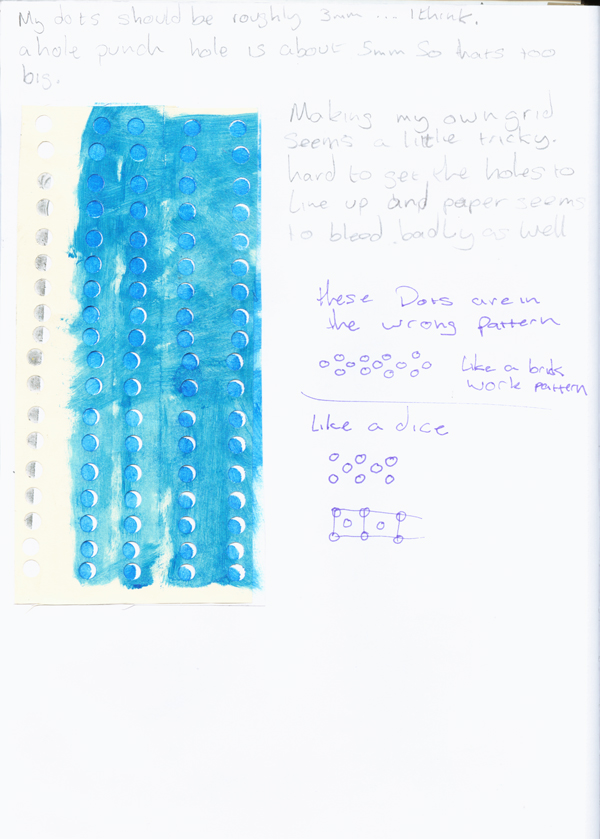 My dots should be roughly 3mm ... I think.
a hole punch hole is about 5mm So thats too
big.
Making my own grid
seems a little tricky.
hard to get the holes to
line up and paper seems
to bleed badly as well
these Dots are in
the wrong pattern
Like a brick
work pattern
Like a dice